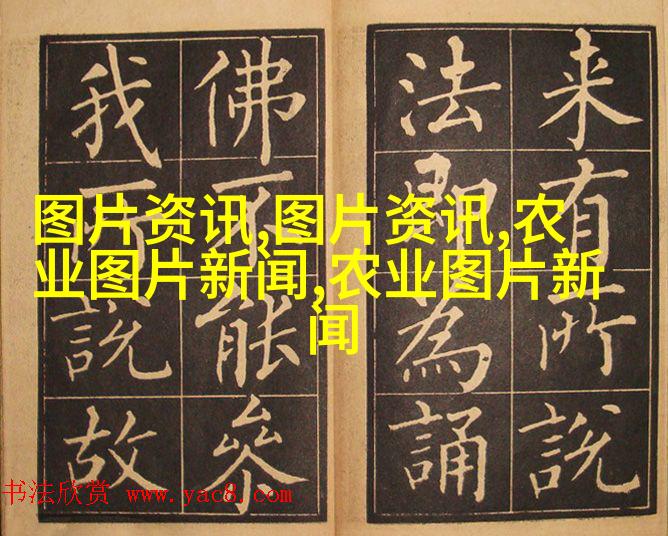 来有所說
法即為誦
佛不能叅
我而說故
图片资讯,图片资讯,农
业图片新闻,农业图片新
闻
书法欣赏 www.yac8.com